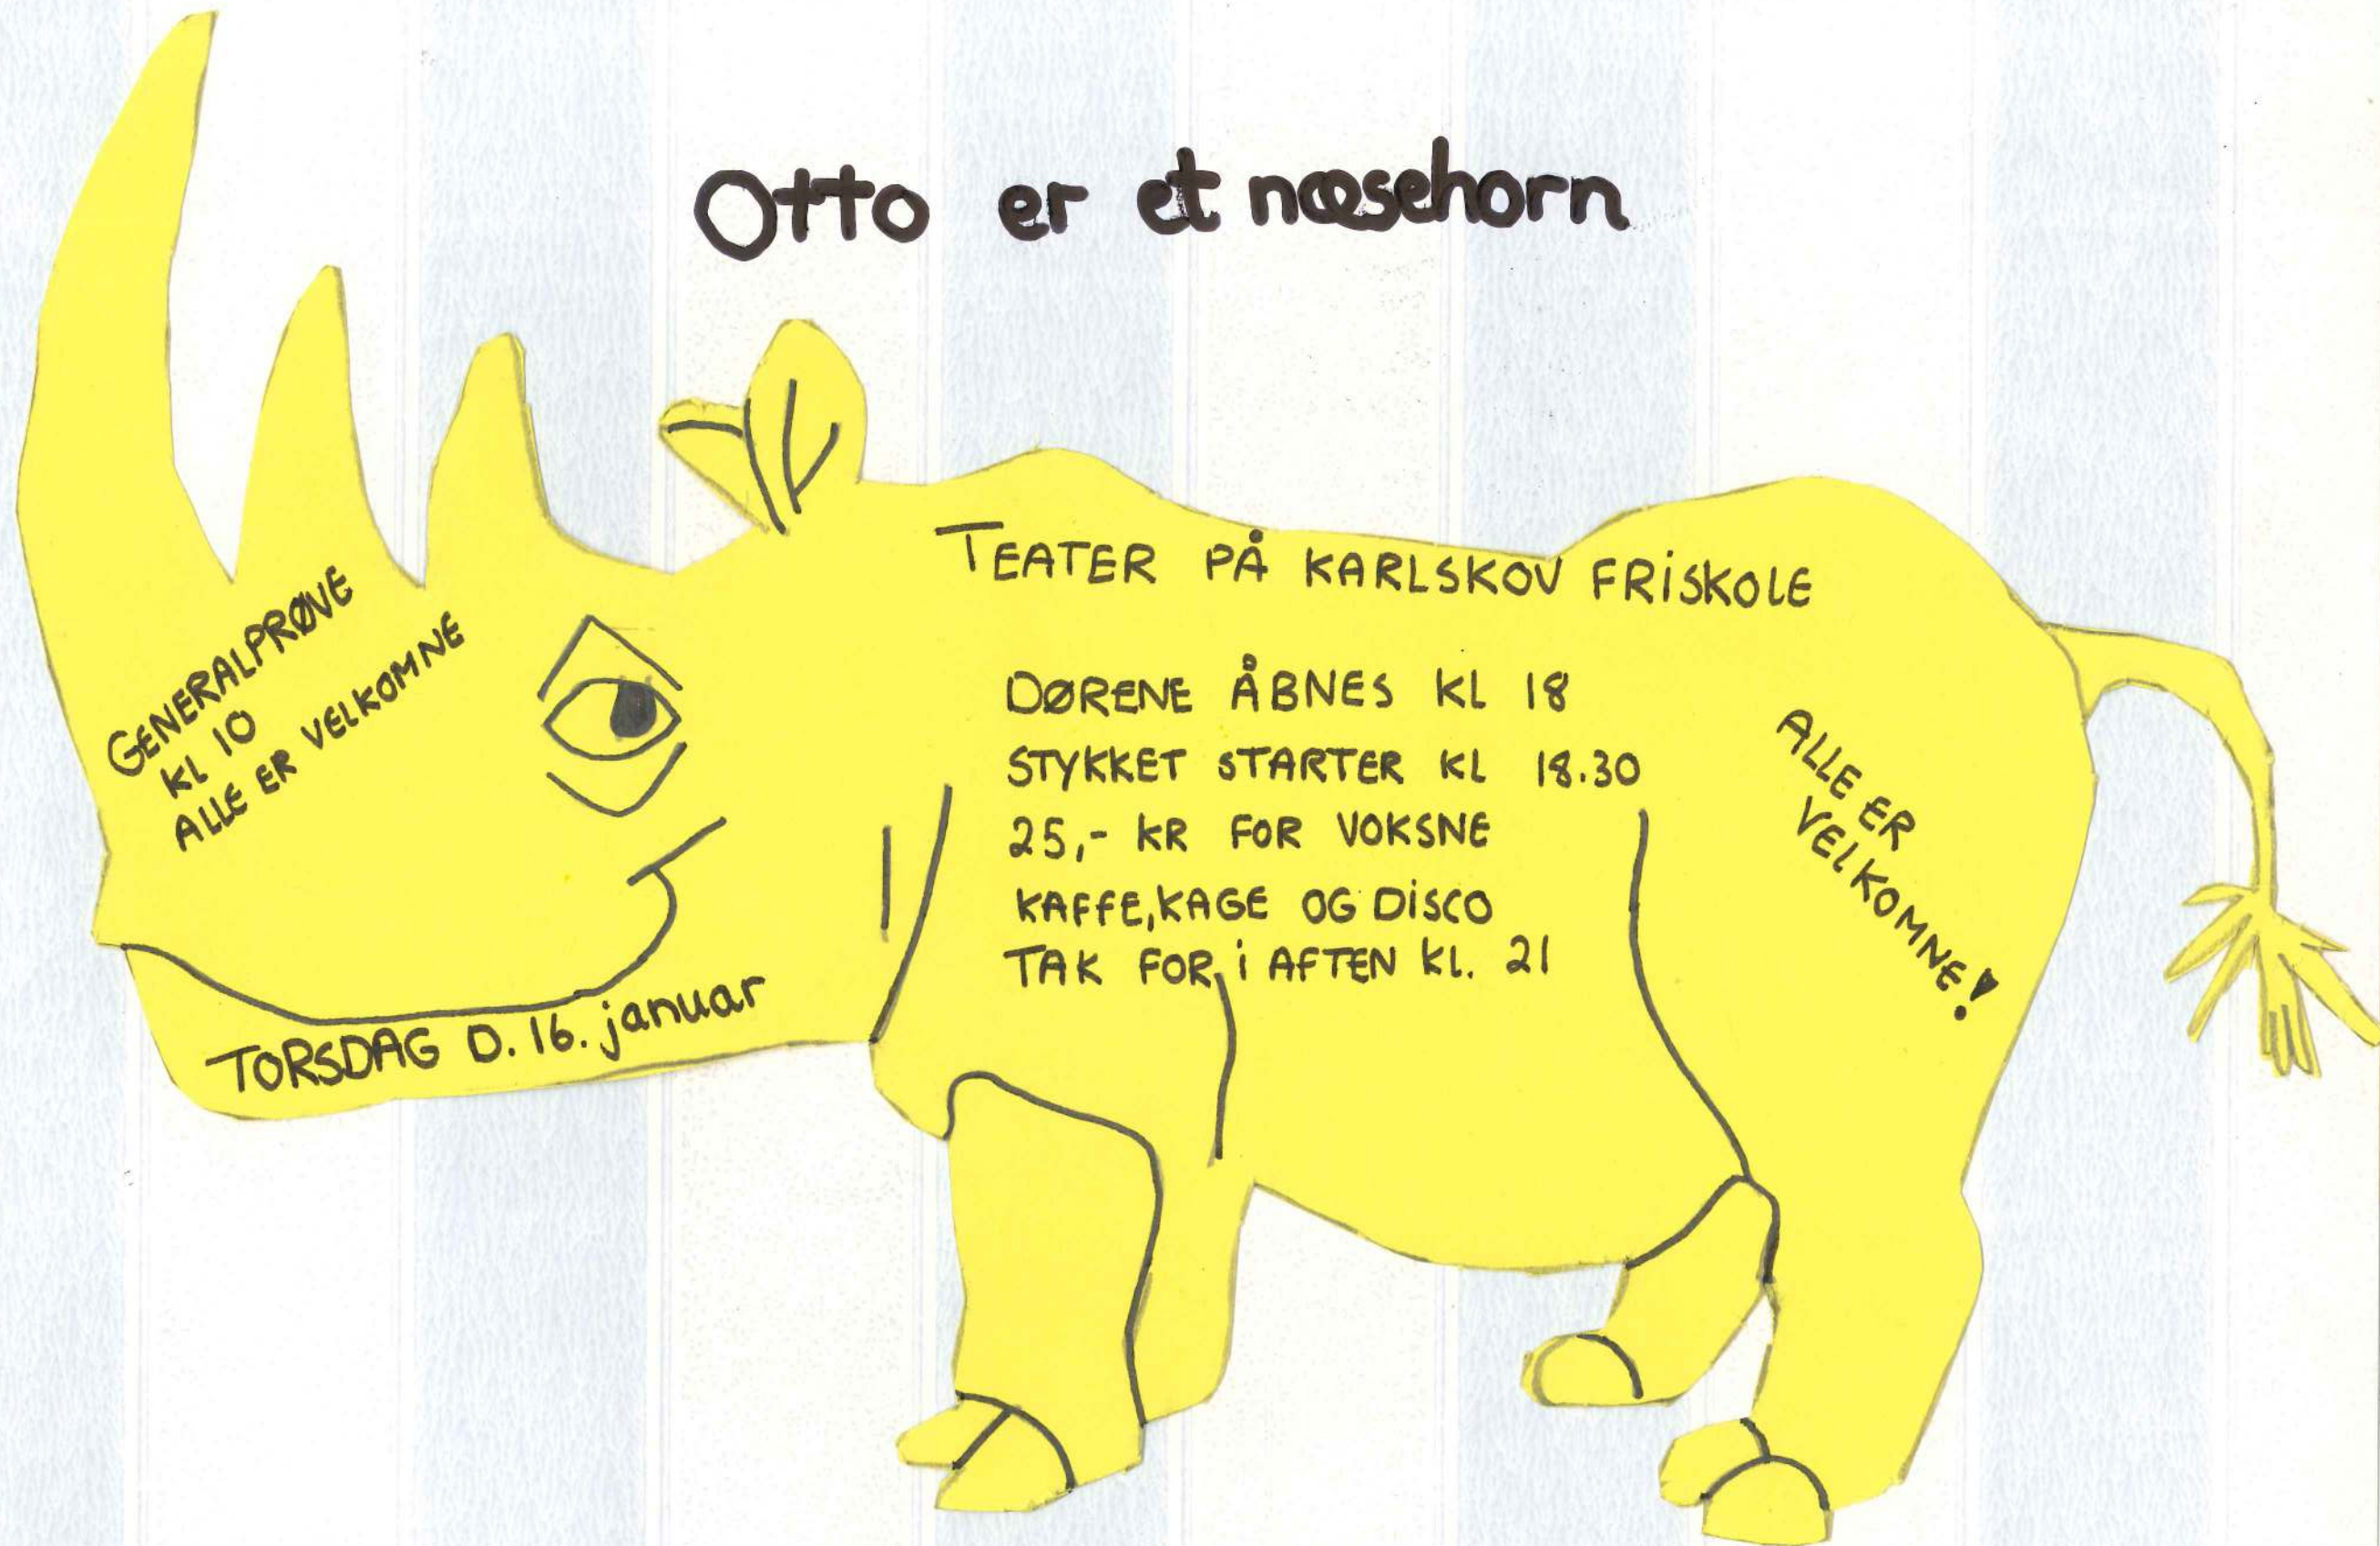 Otto er et næsehorn
GENERALPRØVE
KL 10
ALLE ER VELKOMNE
TORSDAG D. 16. januar
TEATER PÅ KARLSKOV FRISKOLE
DØRENE ÅBNES KL 18
STYKKET STARTER KL 18.30
25,- KR FOR VOKSNE
KAFFE, KAGE OG DISCO
TAK FOR I AFTEN KL. 21
ALLE ER
VELKOMNE!